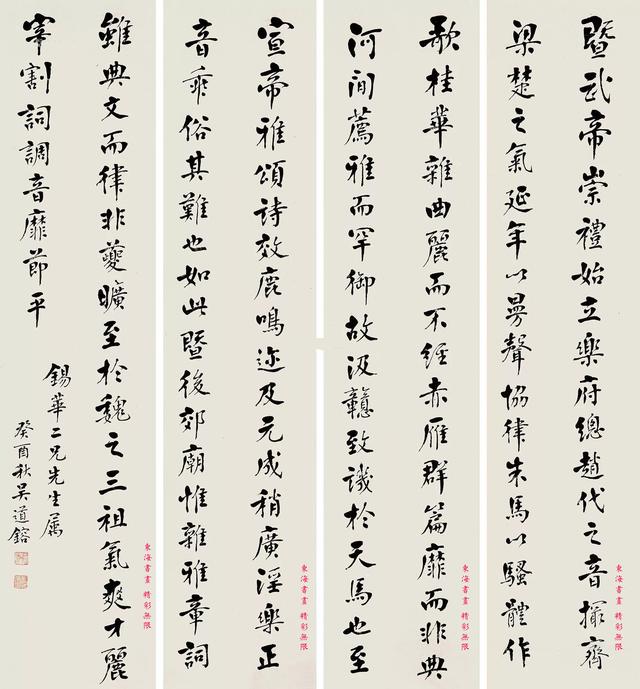 暨武帝崇禮始立樂府總趙代之音撮齊
梁楚之氣延年以曼聲協律朱馬以騷體作
歌桂華雜曲麗而不經赤雁群篇靡而非典
河間薦雅而罕御故汲黯致譏於天馬也至
宣帝雅頌詩效鹿鳴邇及元成稍廣淫樂正
音乖俗其難也如此暨後郊廟惟雜雅章詞
雖典文而律非夔曠至於魏之三祖氣爽才麗
宰割詞調音靡節平
錫華二兄先生屬
癸酉秋吳道鎔
東海書畫 精彩無限
東海書畫 精彩無限
東海書畫 精彩無限
東海書畫 精彩無限